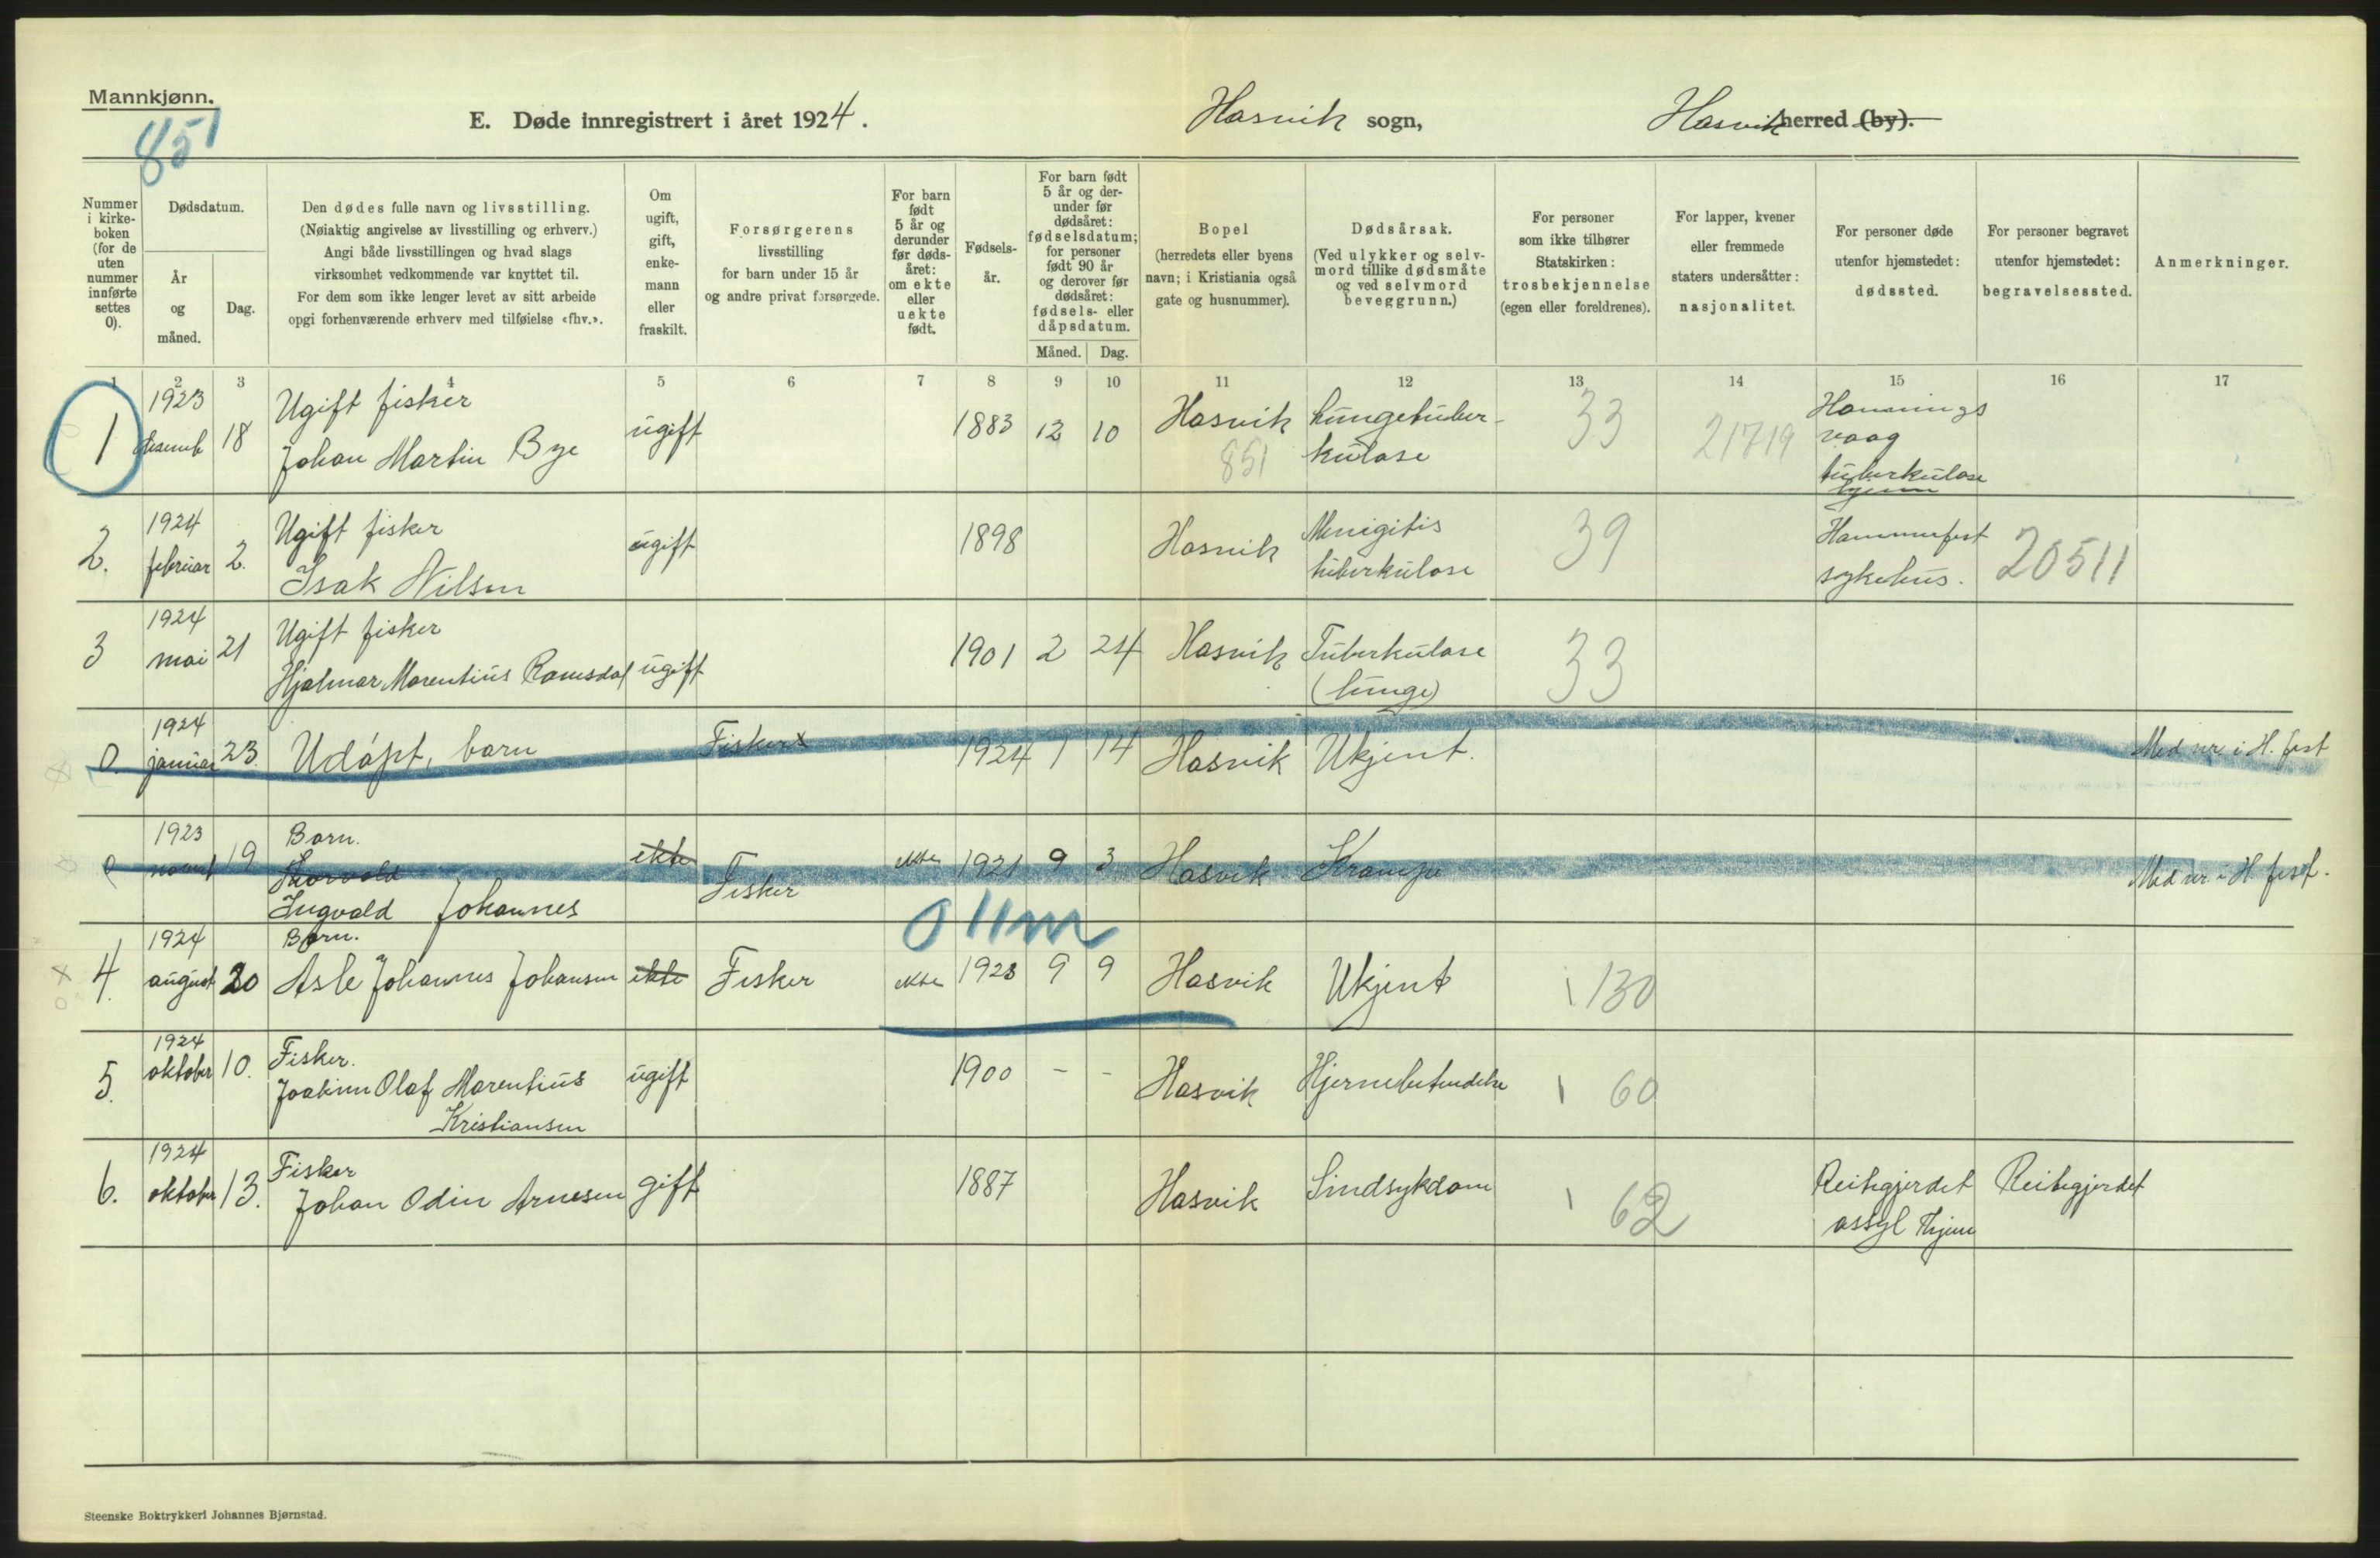 Mannkjønn.
851
E. Døde innregistrert i året 1924.
Hasvik sogn,
Hasvik herred (by).
Nummer i kirke-boken (for de uten nummer innførte settes 0).
Dødsdatum.
År og måned.
Dag.
Den dødes fulle navn og livsstilling.
(Nøiaktig angivelse av livsstilling og erhverv.)
Angi både livsstillingen og hvad slags
virksomhet vedkommende var knyttet til.
For dem som ikke lenger levet av sitt arbeide
opgi forhenværende erhverv med tilføielse «fhv.».
Om ugift, gift, enke-mann eller fraskilt.
Forsørgerens
livsstilling
for barn under 15 år
og andre privat forsørgede.
For barn født 5 år og derunder før døds-året: om ekte eller uekte født.
Fødsels-år.
For barn født 5 år og der-under før dødsåret: fødselsdatum; for personer født 90 år og derover før dødsåret: fødsels- eller dåpsdatum.
Måned.
Dag.
Bopel
(herredets eller byens
navn; i Kristiania også
gate og husnummer).
Dødsårsak.
(Ved ulykker og selv-
mord tillike dødsmåte
og ved selvmord
beveggrunn.)
For personer
som ikke tilhører
Statskirken:
trosbekjennelse
(egen eller foreldrenes).
For lapper, kvener
eller fremmede
staters undersåtter:
nasjonalitet.
For personer døde
utenfor hjemstedet:
dødssted.
For personer begravet
utenfor hjemstedet:
begravelsessted.
Anmerkninger.
1 2 3 4 5 6 7 8 9 10 11 12 13 14 15 16 17
1923
1 desemb 18
Ugift fisker
Johan Martin Bye
ugift
1883 12 10
Hasvik
851
Lungetuber-
kulose
33
21719
Honnings
vaag
tuberkulose
hjem
1924
2. februar 2.
Ugift fisker
Isak Nilsen
ugift
1898
Hasvik
Menigitis
tuberkulose
39
Hammerfest
sykehus.
20511
1924
3 mai 21
Ugift fisker
Hjalmar Marentius Ramsdal
ugift
1901 2 24
Hasvik
Tuberkulose
(lunge)
33
1924
0. januar 23.
Udøpt, barn
Fisker
1924 1 14
Hasvik
Ukjent.
Med nr. i H. fest
1923
0 novemb 19
Barn.
Thorvald
Ingvald Johannes
ekte
Fisker
ekte
1921 9 3
Hasvik
Krampe
Med nr. i H. fest.
0 11m
1924
4. august 20
Barn.
Asle Johannes Johansen
ekte
Fisker
ekte
1923 9 9
Hasvik
Ukjent
130
1924
5. oktober 10.
Fisker.
Joakim Olaf Marentius
Kristiansen
ugift
1900 - -
Hasvik
Hjernebetendelse
60
1924
6. oktober 13.
Fisker
Johan Odin Arnesen
gift
1887
Hasvik
Sindsykdom
62
Reitgjerdet
assyl Thjem
Reitgjerdet
Steenske Boktrykkeri Johannes Bjørnstad.